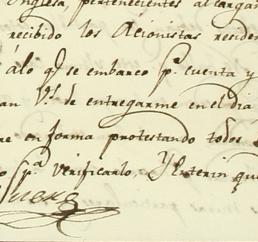 Inglesa, pertenecientes al cargam
recibido los Acionistas residen
álo q.e se embarco p.r cuenta y
an V.s de entregarme en el dia
me en forma protestando todos
p.a verificarlo, Y Enterin que